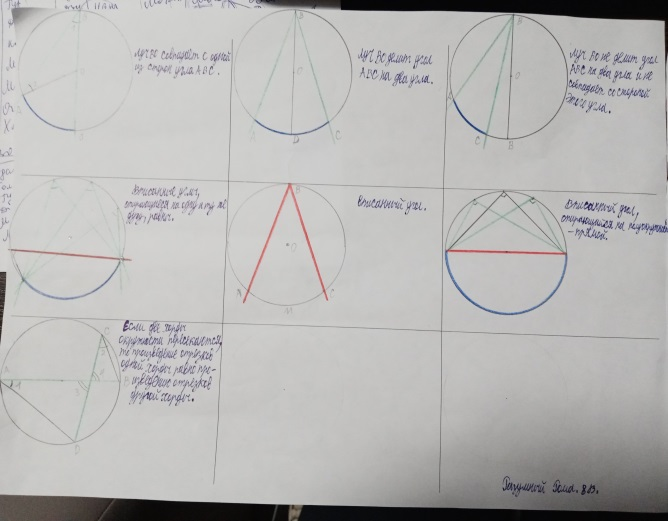 Луч ВО совпадает с одной
из сторон угла АВС.
Луч ВО делит угол
АВС на два угла.
Луч ВО не делит угол
АВС на два угла и не
совпадает со стороной
этого угла.
Вписанные углы,
опирающиеся на одну и ту же
дугу, равны.
Вписанный угол.
Вписанный угол,
опирающийся на полуокружность
-прямой.
Если две хорды
окружности пересекаются,
то произведение отрезков
одной хорды равно про-
изведению отрезков
другой хорды.
B
O
A
D
C
B
O
A
C
B
B
O
A
C
M
A
C
B
D
Разумный Рома. 8